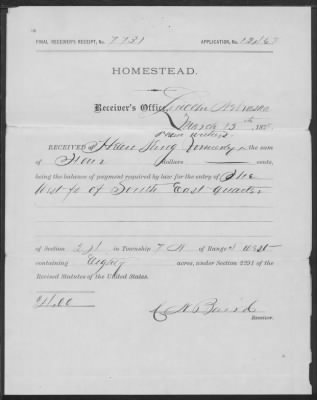 FINAL RECEIVER'S RECEIPT, No. 7731 APPLICATION, No.
HOMESTEAD.
Receiver's Office, Lincoln Nebraska
March 13th, 187
RECEIVED of the sum
of Four dollars cents,
being the balance of payment required by law for the entry of The
West ½ of South East quarter
of Section 24 in Township 7 N of Range 4 West
containing Eighty acres, under Section 2291 of the
Revised Statutes of the United States.
$4.00
Baird
Receiver.